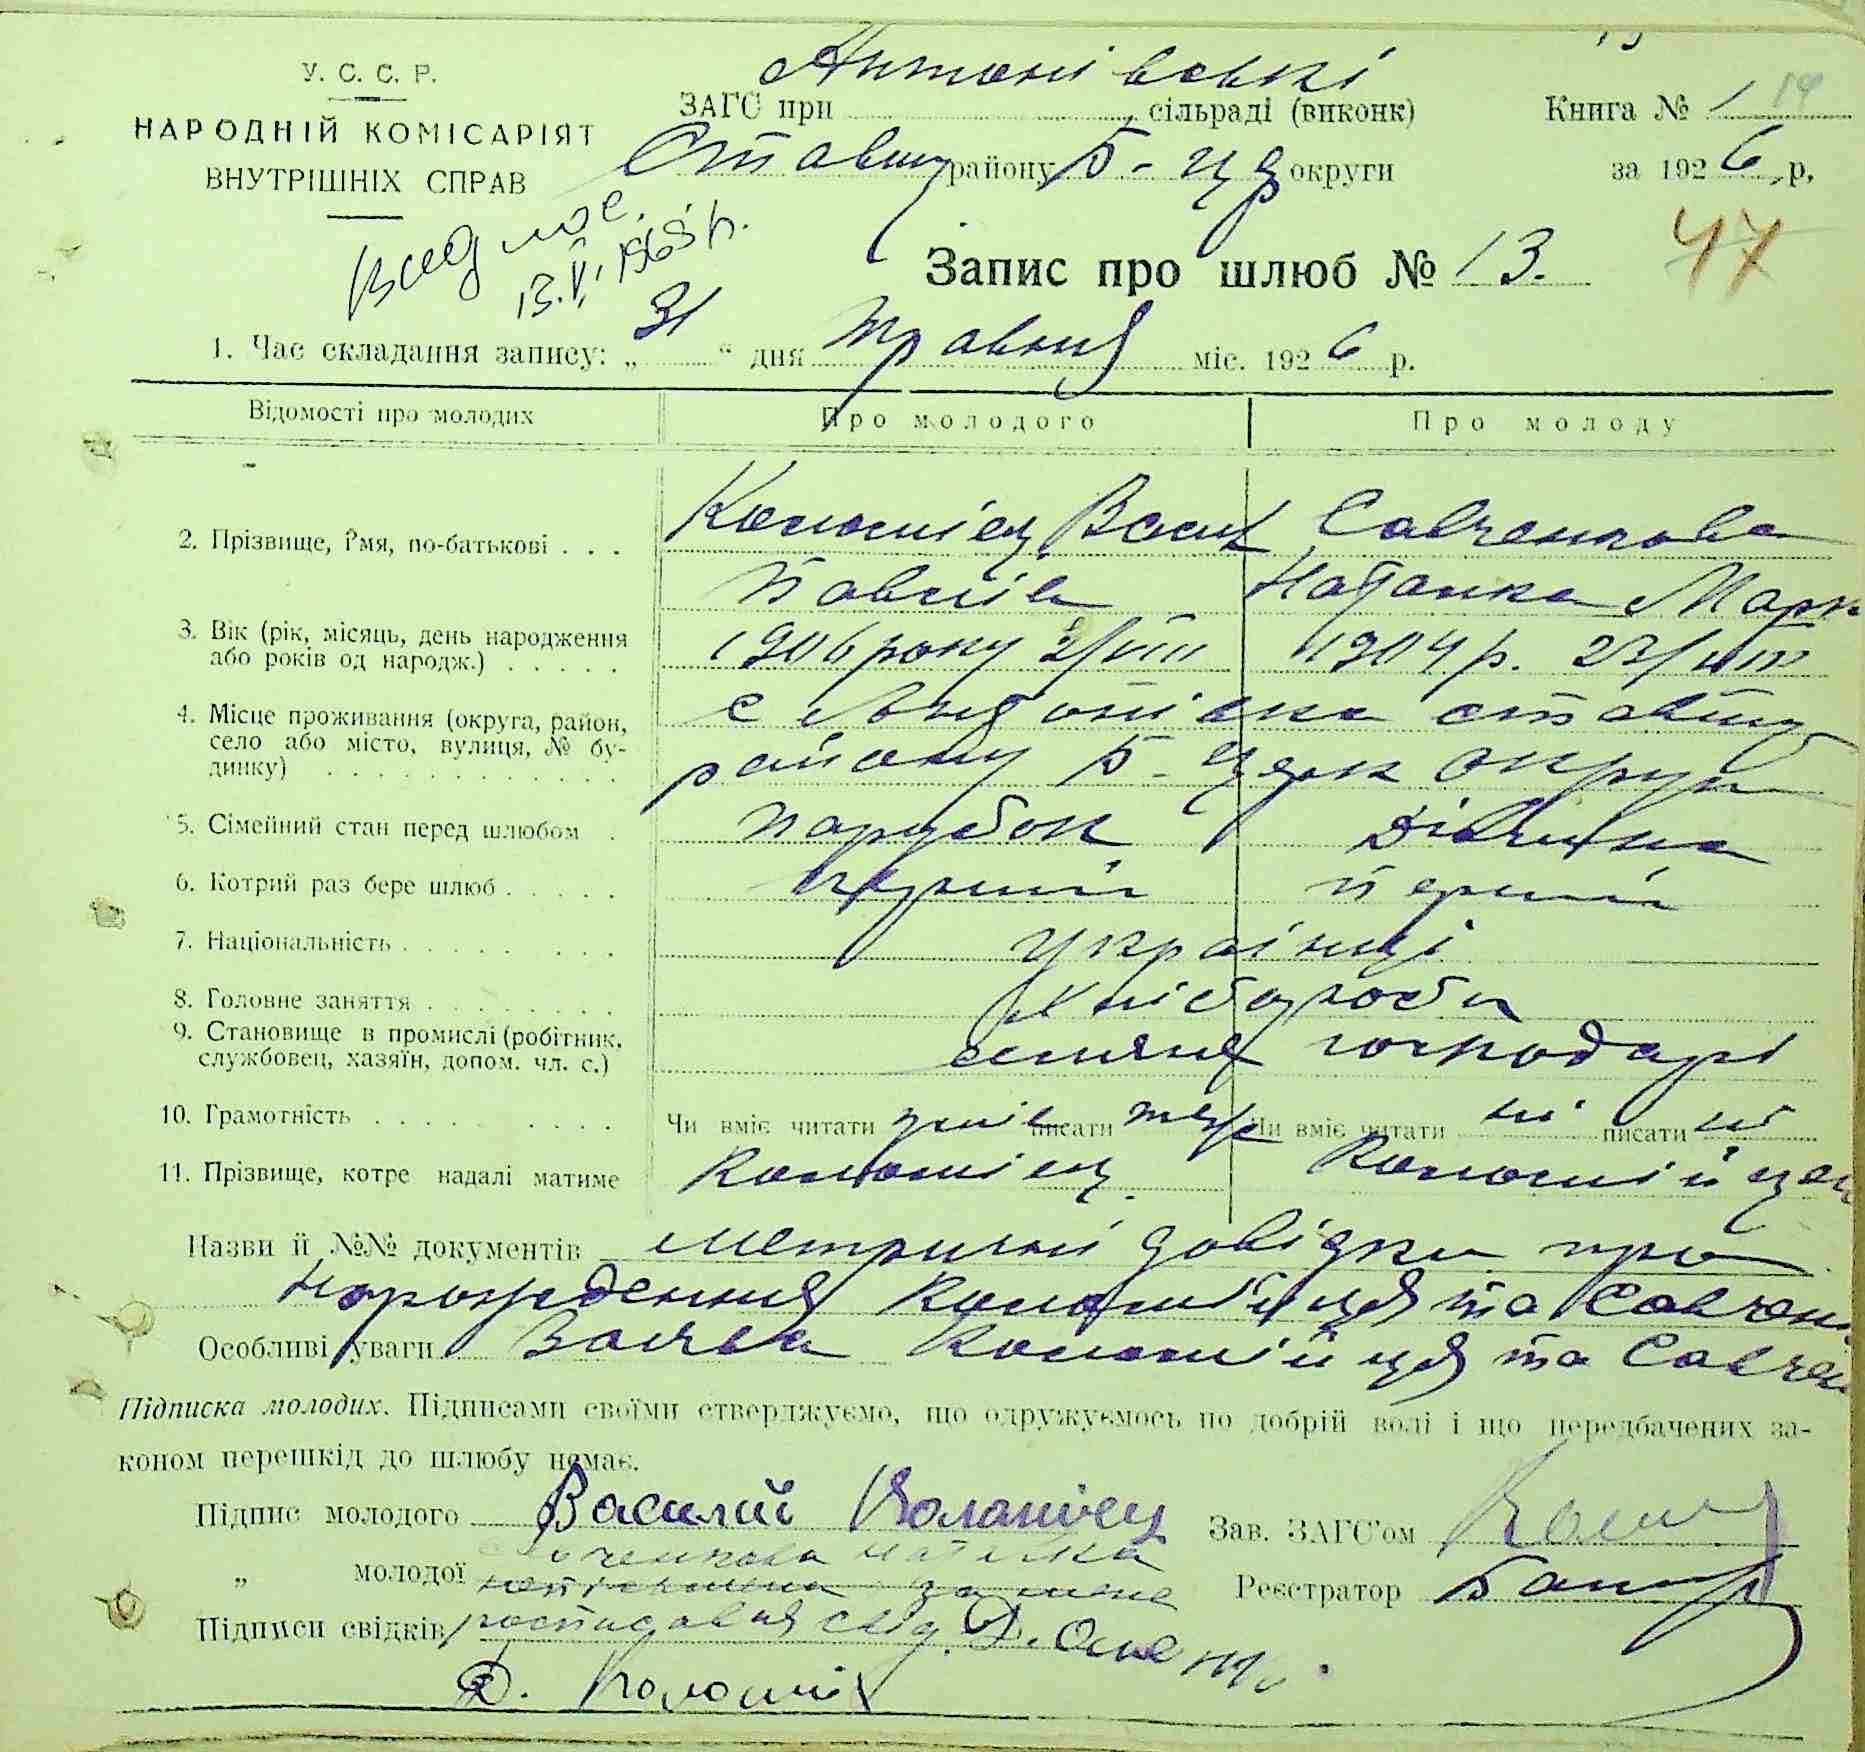 У. С. С. Р.
НАРОДНІЙ КОМІСАРІЯТ
ВНУТРІШНІХ СПРАВ
Антонівські
ЗАГС при сільраді (виконк)
Ставищ району Б-Цер округи
Книга № 1 14
за 1926 р.
13.V.1963 р.
Запис про шлюб № 13. 47
1. Час складання запису: „31“ дня травня міс. 1926 р.
Відомості про молодих
Про молодого
Про молоду
2. Прізвище, і’мя, по-батькові . . .
Коломієц Васил
Павлів
Савченкова
Наталка Марк
3. Вік (рік, місяць, день народження
або років од народж.) . . . . .
1906 року 2/VIII
1904 р. 23/VIII
4. Місце проживання (округа, район,
село або місто, вулиця, № бу-
динку) . . . . . . . . . . . .
с Антонівка ставищ
району Б. Церк округи
5. Сімейний стан перед шлюбом .
парубок
дівчина
6. Котрий раз бере шлюб . . . . .
перший
перший
7. Національність . . . . . . . .
українці
8. Головне заняття . . . . . . . .
хлібороби
9. Становище в промислі (робітник,
службовец, хазяїн, допом. чл. с.)
господарі
10. Грамотність . . . . . . . . . .
Чи вміє читати уміє писати теж
Чи вміє читати ні писати ні
11. Прізвище, котре надалі матиме
Коломієц
Назви й №№ документів метричні довідки про
народження Коломійця та Савченк
Особливі уваги Заява Коломійця та Савчен
Підписка молодих. Підписами своїми стверджуємо, що одружуємось по добрій волі і що передбачених за-
коном перешкід до шлюбу немає.
Підпис молодого Василій Коломієц
Зав. ЗАГС’ом
„ молодої
неписьменна за мене
Реєстратор
Підписи свідків росписався свід. Д.
Д. Коломієц